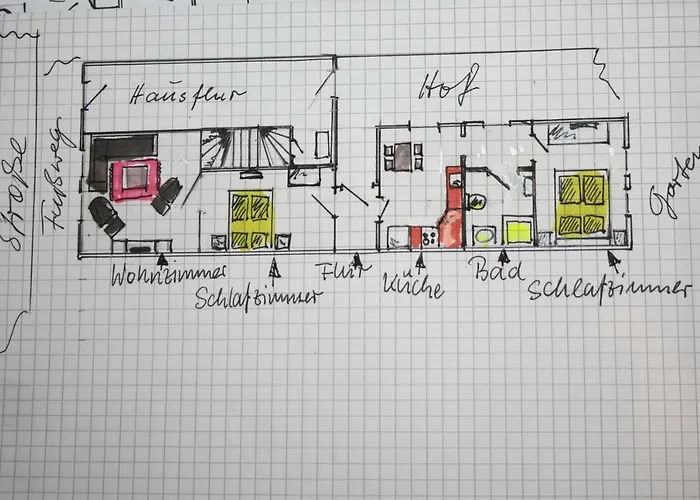 Straße
Fußweg
Hausflur
Hof
Garten
Wohnzimmer
Schlafzimmer
Flur
Küche
Bad
Schlafzimmer